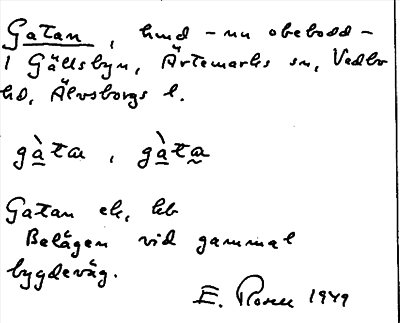 Gatan, hmd - nu obebodd -
i Gällsbyn, Ärtemarks sn, Vedbo
hd, Älvsborgs l.
gàtæ, gàtæ
Gatan ek, kb
Belägen vid gammal
bygdeväg.
E. Rosell 1949